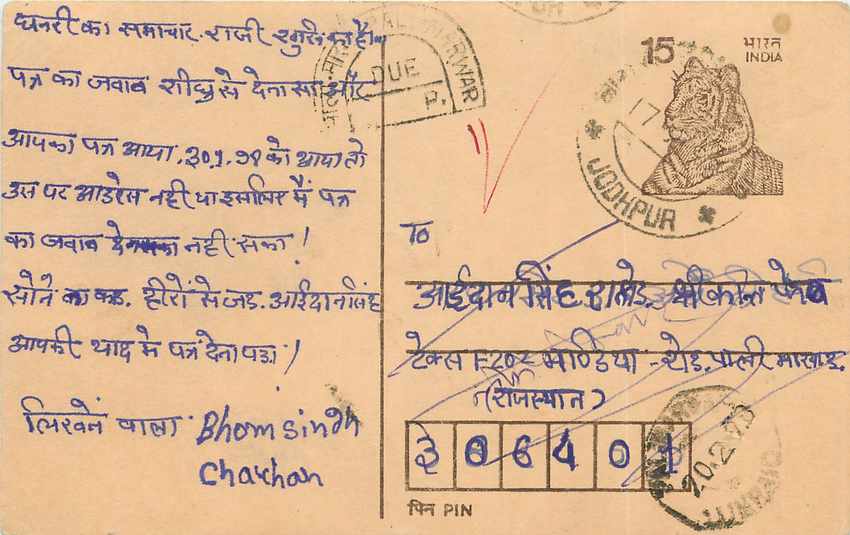 धनरी का समाचार. राजी खुसी का है।
पत्र का जवाब शीघ्र से देना सा और
आपका पत्र आया. 30.1. को आया तो
उस पर आडरेस नही था इसलिए मैं पत्र
का जवाब नही सका!
सोने का कड. हीरों से जड. आईदानसिंह
आपकी याद मे पत्र देना पडा!
लिखनें वाला Bhom Singh
Chauhan
DUE
P.
MARWAR
15
भारत
INDIA
17
JODHPUR
To
आईदान सिंह राठोड. श्री कान्त
टेक्स F 202 मण्डिया - रोड. पाली मारवाड.
(राजस्थान)
३ 0 6 4 0 1
पिन PIN
20.2